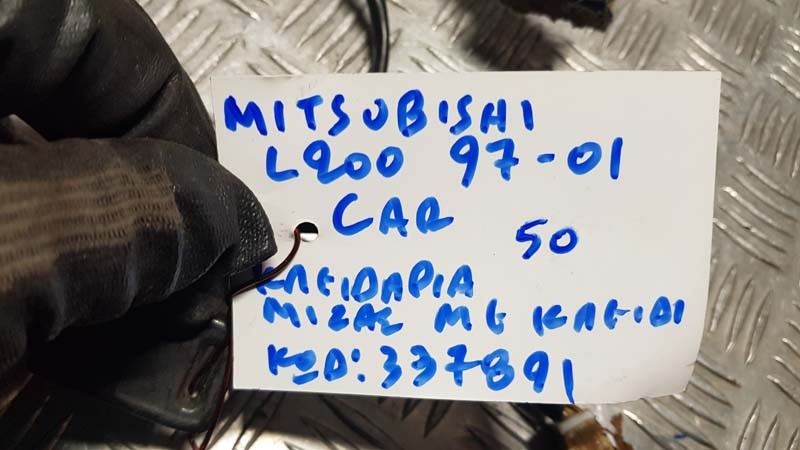 MITSUBISHI
L200 97-01
CAR 50
ΚΛΕΙΔΑΡΙΑ
ΜΙΖΑΣ ΜΕ ΚΛΕΙΔΙ
ΚΩΔ: 337891